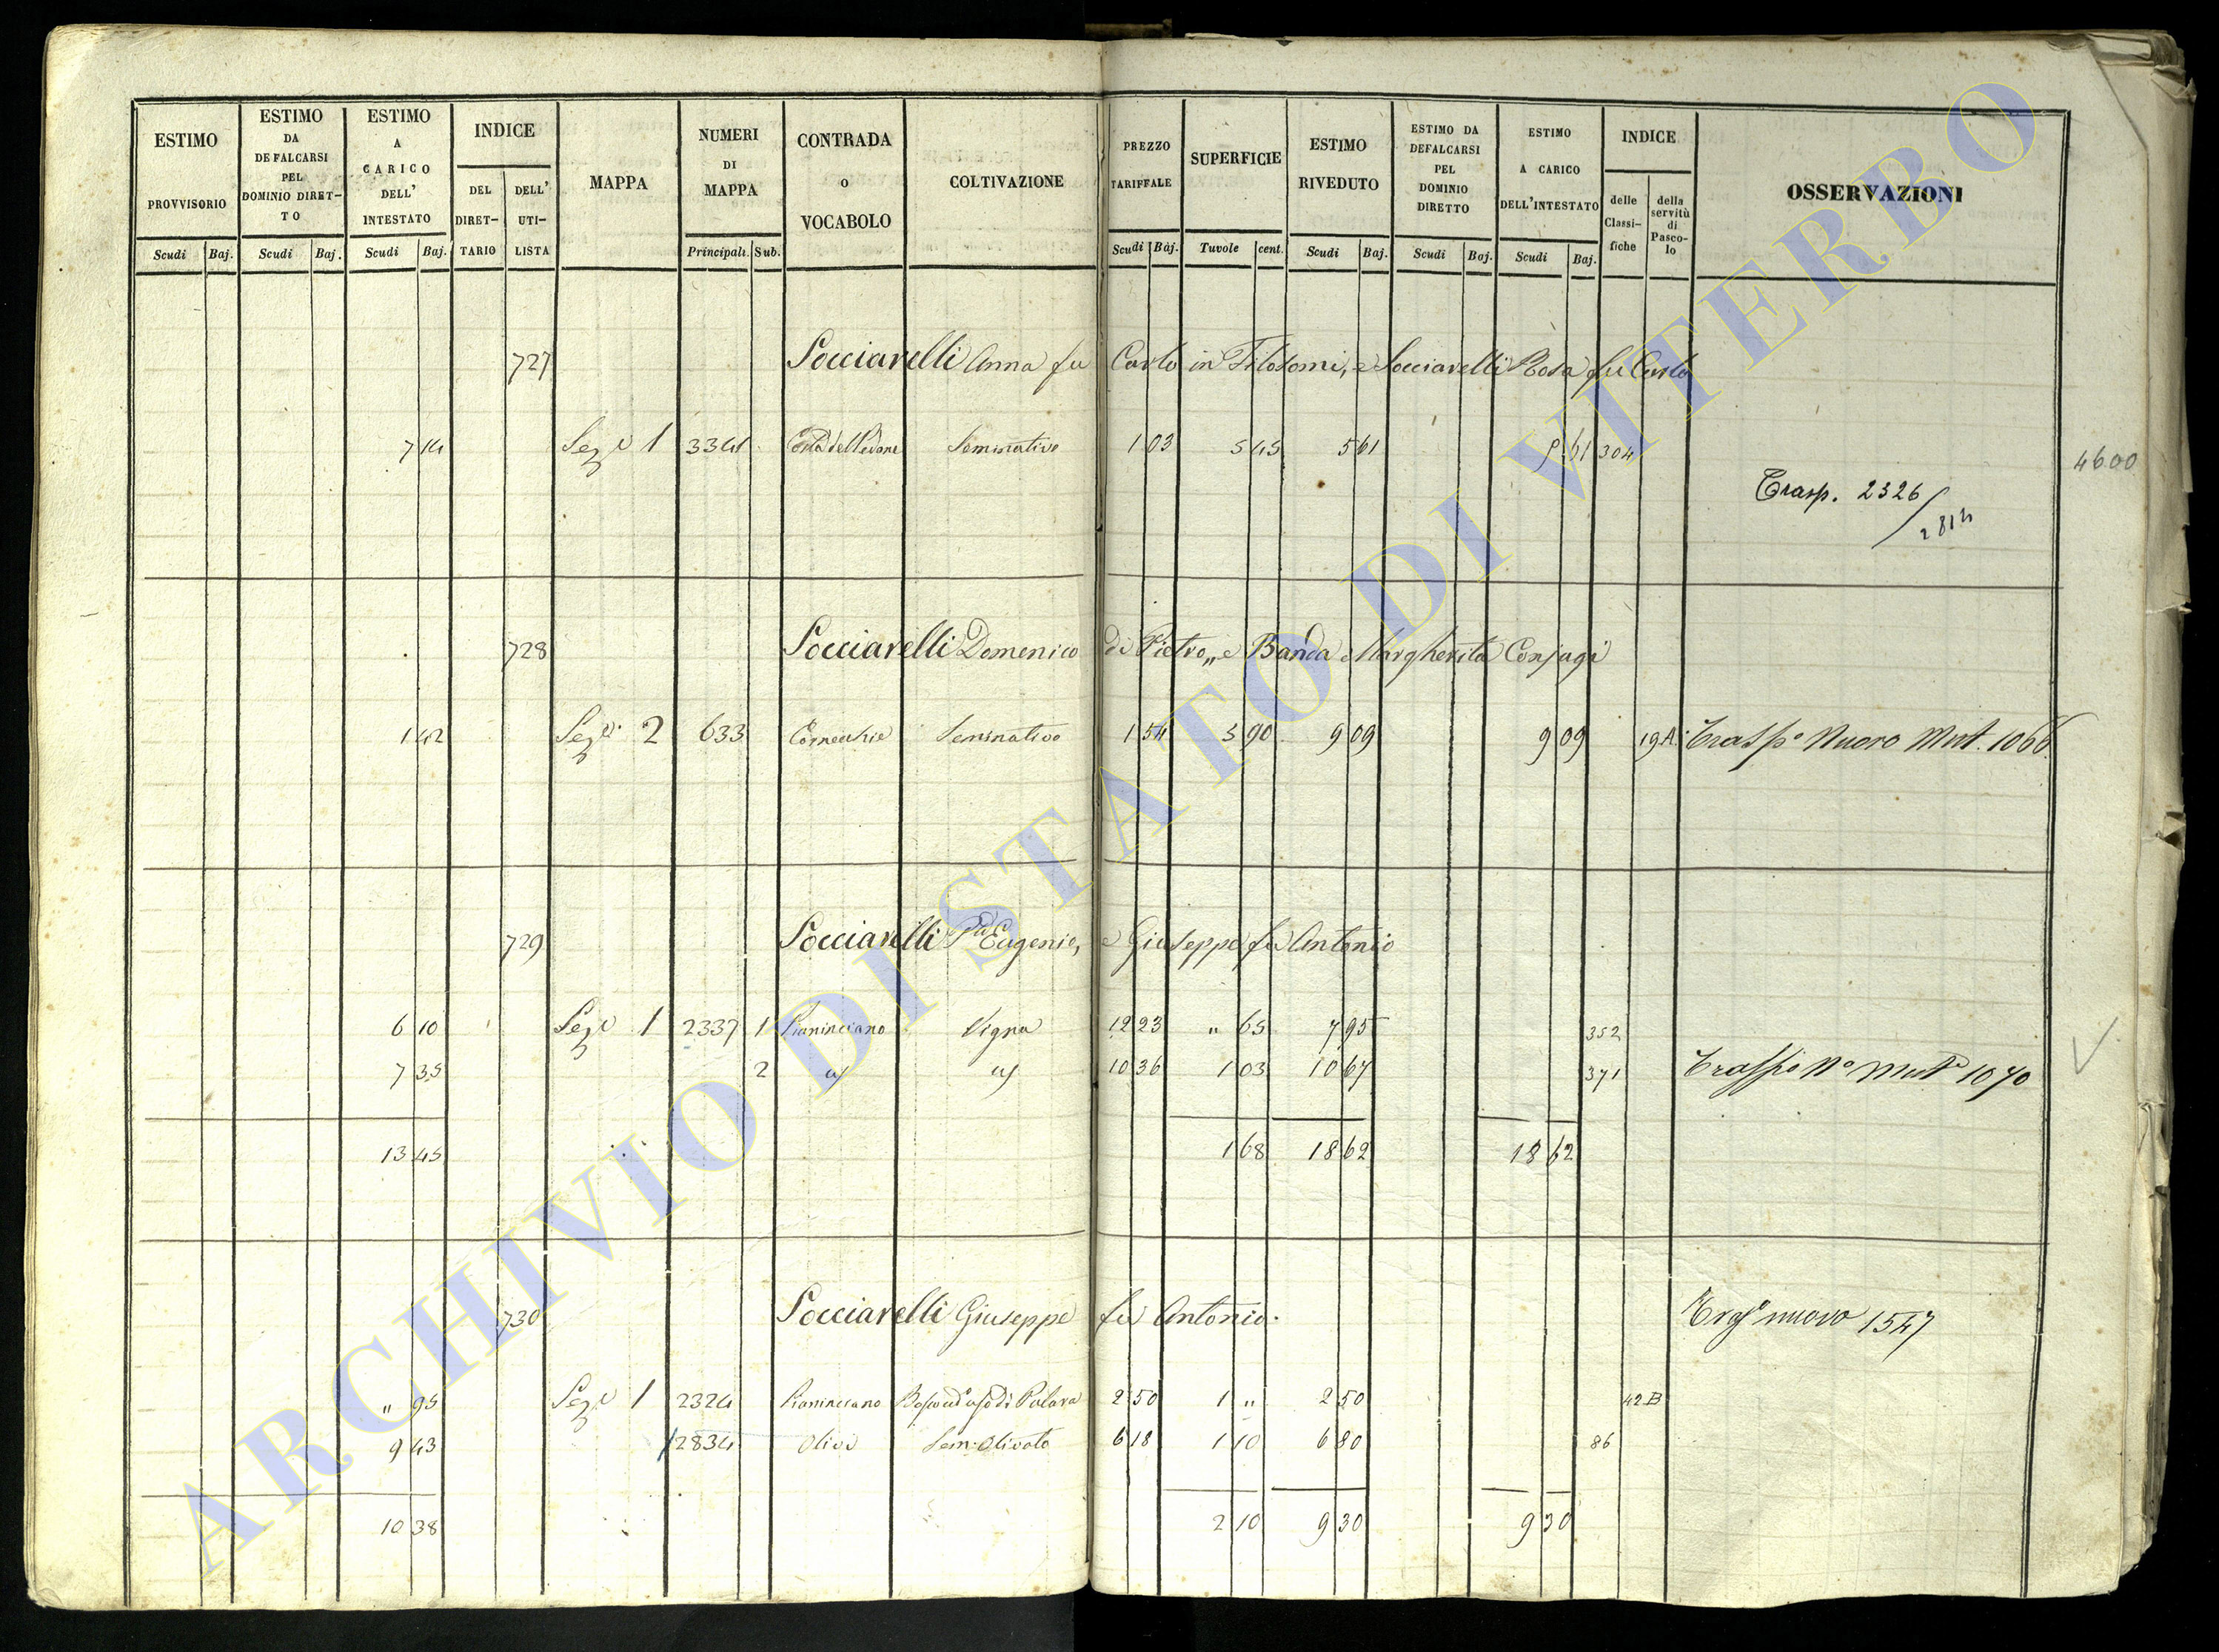 ESTIMO PROVVISORIO | ESTIMO DA DEFALCARSI PEL DOMINIO DIRETTO | ESTIMO A CARICO DELL' INTESTATO | INDICE | MAPPA | NUMERI DI MAPPA | CONTRADA O VOCABOLO | COLTIVAZIONE | PREZZO TARIFFALE | SUPERFICIE | ESTIMO RIVEDUTO | ESTIMO DA DEFALCARSI PEL DOMINIO DIRETTO | ESTIMO A CARICO DELL'INTESTATO | INDICE | OSSERVAZIONI
DEL DIRETTARIO | DELL' UTILISTA | delle Classifiche | della servitù di Pascolo
Scudi | Baj. | Scudi | Baj. | Scudi | Baj. | Principali. | Sub. | Scudi | Baj. | Tavole | cent. | Scudi | Baj. | Scudi | Baj. | Scudi | Baj.
727 Socciarelli Anna fu Carlo in Filosomi, e Socciarelli Rosa fu Carlo
7 14 Seze 1 3341 Seminativo 1 03 5 45 5 61 5 61 304
4600
Trasp. 2326
2814
728 Socciarelli Domenico di Pietro, e Banda Margherita Conjugi
1 42 Seze 2 633 Cornecchie Seminativo 1 54 5 90 9 09 9 09 19A Trasp° Nuovo Mut. 1066
729 Socciarelli Pa Eugenie, e Giuseppe fu Antonio
6 10 Seze 1 2337 1 Pianinciano Vigna 12 23 " 65 7 95 352
7 35 2 10 36 1 03 10 67 371 Trasp° N° Mut° 1070
13 45 1 68 18 62 18 62
730 Socciarelli Giuseppe fu Antonio. nuovo 1547
" 95 Seze 1 2324 Pianinciano 2 50 1 " 2 50 42 B
9 43 2834 Olivi Sem: Olivato 6 18 1 10 6 80 86
10 38 2 10 9 30 9 30
ARCHIVIO DI STATO DI VITERBO